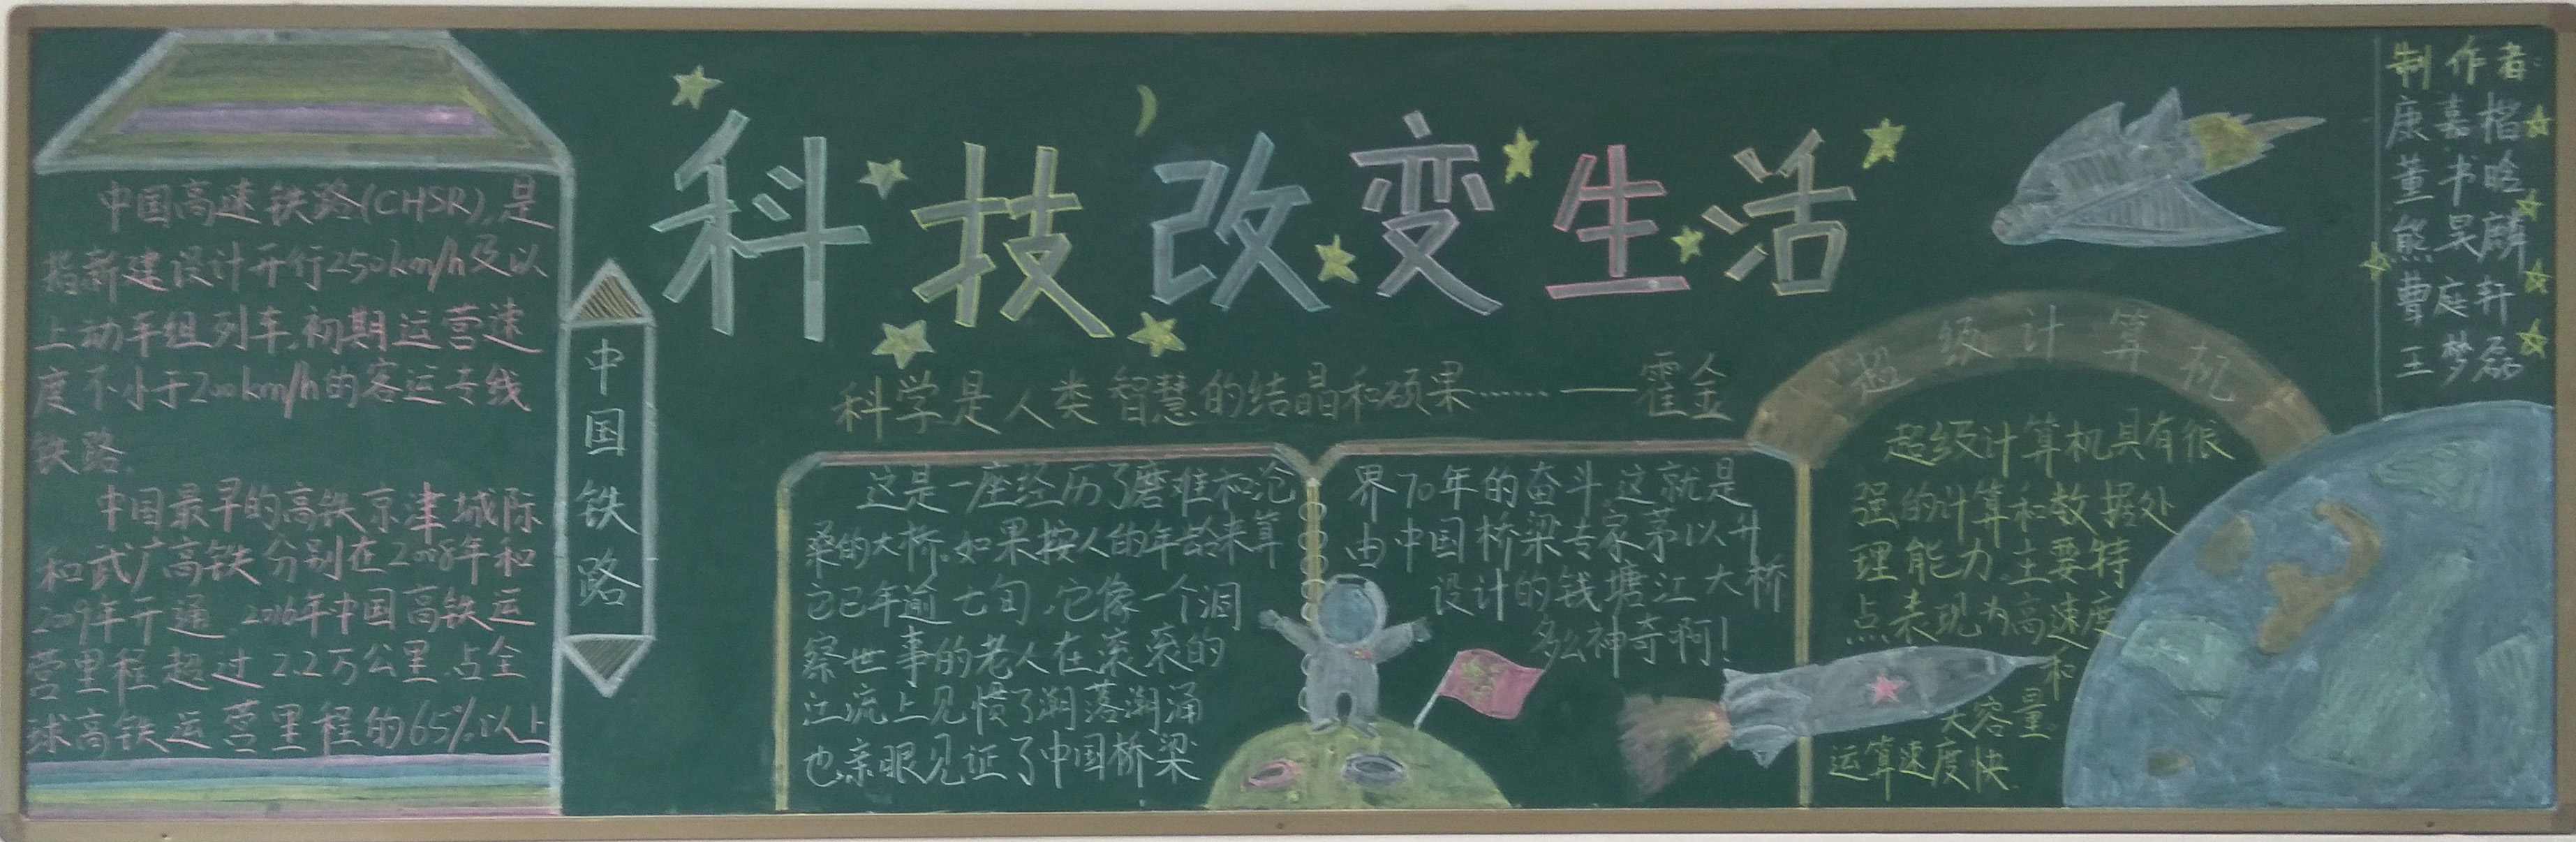 科技改变生活
科学是人类智慧的结晶和硕果……——霍金
中国高速铁路(CHSR),是
指新建设计开行250km/h及以
上动车组列车,初期运营速
度不小于200km/h的客运专线
铁路.
中国最早的高铁京津城际
和武广高铁分别在2008年和
2009年开通.2016年中国高铁运
营里程超过2.2万公里.占全
球高铁运营里程的65%以上
中国铁路
这是一座经历了磨难和沧
桑的大桥.如果按人的年龄来算
它已年逾七旬.它像一个洞
察世事的老人在滚滚的
江流上见惯了潮落潮涌
也亲眼见证了中国桥梁
界70年的奋斗.这就是
由中国桥梁专家茅以升
设计的钱塘江大桥
多么神奇啊!
超级计算机
超级计算机具有很
强的计算和数据处
理能力.主要特
点表现为高速度
和
大容量.
运算速度快.
制作者:
康嘉楷
董书晗
熊昊麟
曹庭轩
王梦磊